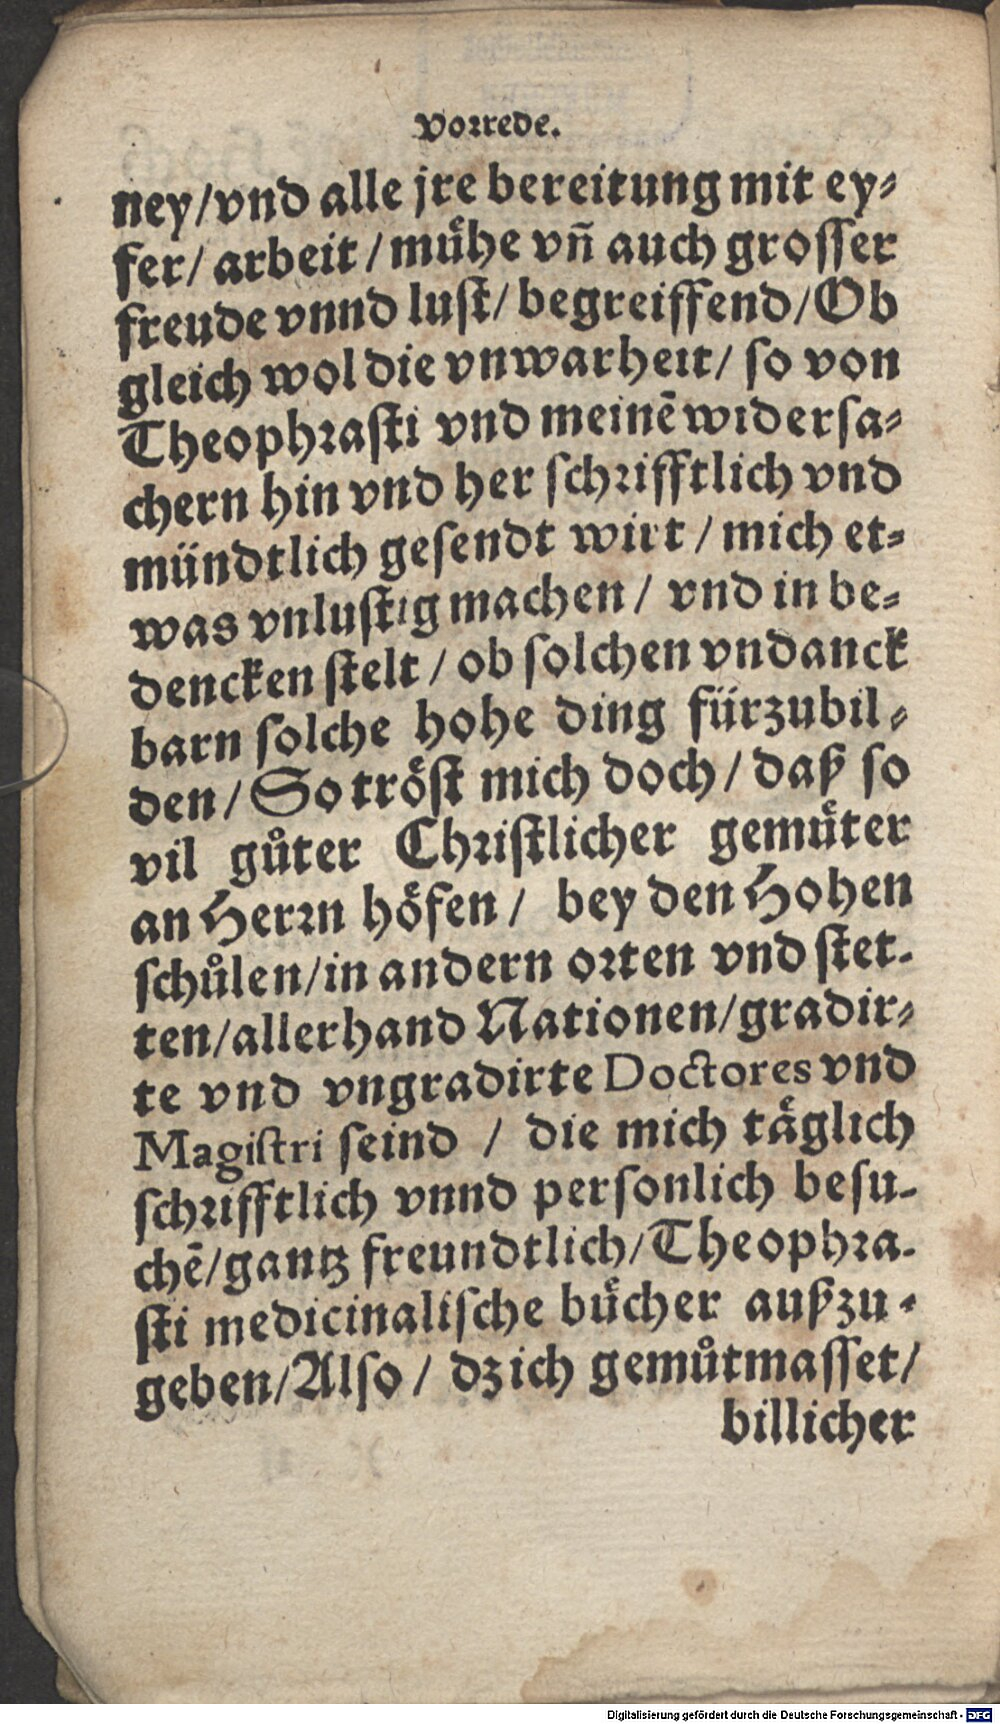 Vorrede.
ney/vnd alle jre bereitung mit ey⸗
fer/ arbeit /muͤhe vñ auch grosser
freude vnnd lust/ begreiffend/Ob
gleich wol die vnwarheit/ so von
Theophrasti vnd meinẽ widersa⸗
chern hin vnd her schrifftlich vnd
mündtlich gesendt wirt / mich et⸗
was vnlustig machen / vnd in be⸗
dencken stelt / ob solchen vndanck
barn solche hohe ding fürzubil⸗
den / So troͤst mich doch / daß so
vil guͦter Christlicher gemuͤter
an Herrn hoͤfen / bey den Hohen
schuͦlen/in andern orten vnd stet⸗
ten/allerhand Nationen/gradir⸗
te vnd vngradirte Doctores vnd
Magistri seind / die mich taͤglich
schrifftlich vnnd personlich besu⸗
chẽ/gantz freundtlich/Theophra⸗
sti medicinalische buͤcher außzu⸗
geben/Also / dz ich gemuͦtmasset/
billicher
Digitalisierung gefördert durch die Deutsche Forschungsgemeinschaft - DFG